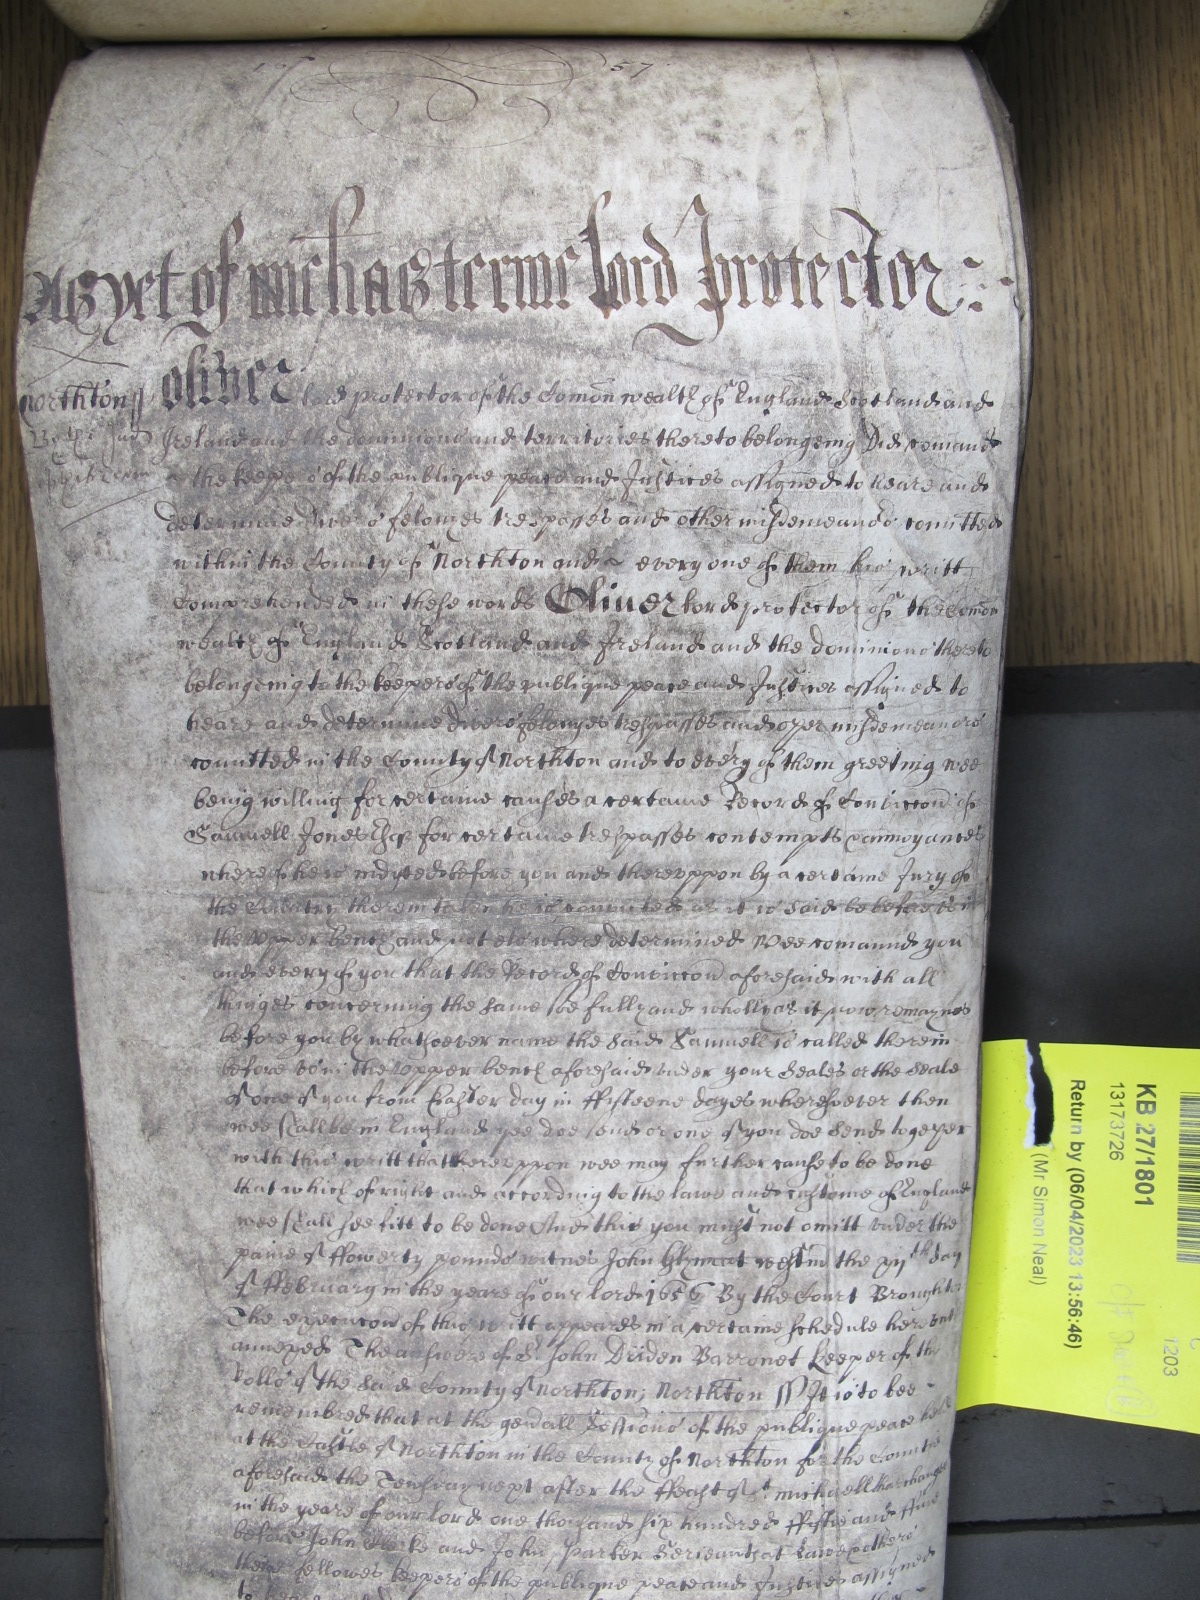 1657
As yet of Michas terme lord Protector
Northton ss Oliver lord protector of the Comon wealth of England Scotland and
Ireland and the dominions and territories thereto belongeing Did comand
the keeps of the publique peace and Justices assigned to heare and
determine divers felonies trespasses and other misdemeandrs comitted
within the County of Northton and every one of them his writt
Comprehended in these words Oliver lord protector of the Comon
wealth of England Scotland and Ireland and the dominions thereto
belongeing to the keepers of the publique peace and Justices assigned to
heare and determine divers felonyes trespasses and oyer misdemeanors
comitted in the County of Northton and to every of them greeting wee
being willing for certaine causes a certaine Record of Conviccon of
Samuell Jones Esq for certaine trespasses contempts & annoyances
whereof he is indyted before you and thereuppon by a certaine Jury of
the Country therein taken he is convicted as it is said be before us in
the Upper Bench and not elswhere determined Wee comannd you
and every of you that the Record of Conviccon aforesaid with all
thinges concerning the same soe fully and wholly as it now remaynes
before you by whatsoever name the said Samuell is called therein
before us in the Upper bench aforesaid under your Seales or the Seale
of one of you from Easter day in ffifteene dayes wheresoever then
wee shall be in England yee doe send or one of you doe send togeyer
with this writt that thereuppon wee may further cause to be done
that which of right and according to the lawe and custome of England
wee shall see fitt to be done And this you might not omitt under the
paine of ffowerty pounds witnes John Glynn at westm the xijth day
of ffebruary in the yeare of our lord 1656 By the Court Broughton
The execucon of this writt appeares in a certaine schedule hereunto
annexed The answere of Sr John Driden Barronet Keeper of the
Rolls of the said County of Northton; Northton ss It is to bee
remembred that at the genrall Sessions of the publique peace held
at the Castle of Northton in the County of Northton for the Countie
aforesaid the Teusday next after the ffeast of St Michaell tharchangel
in the yeare of our lord one thousand six hundred ffiftie and ffive
before John Cleke and John Parker Serieants at Lawe & others
their fellowes Keepers of the publique peace and Justices assigned
KB 27/1801
13173726
Return by (06/04/2023 13:56:46)
(Mr Simon Neal)
1203